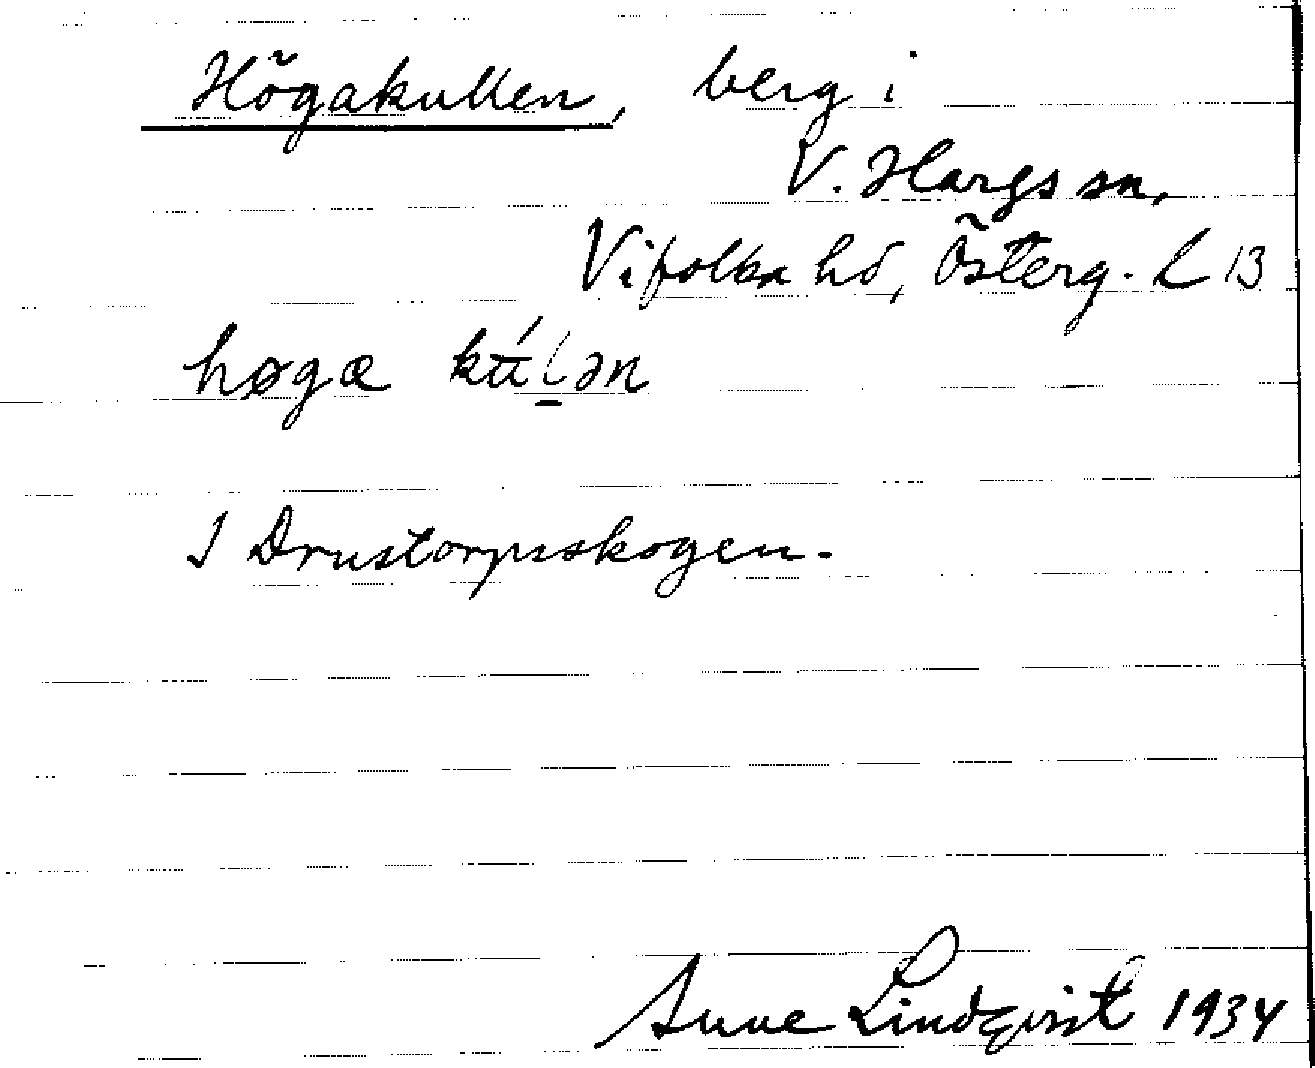 Högakullen, berg i
V. Hargs sn,
Vifolka hd, Österg. L 13
høga
I Drustorpsskogen.
Sune Lindqvist 1934